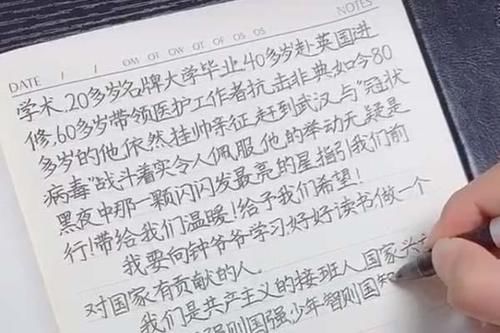 NOTES
DATE / /
学术.20多岁名牌大学毕业.40多岁赴英国进
修.60多岁带领医护工作者抗击非典.如今80
多岁的他依然挂帅亲征.赶到武汉.与"冠状
病毒"战斗着实令人佩服.他的举动无疑是
黑夜中那一颗闪闪发最亮的星指引我们前
行!带给我们温暖!给予我们希望!
我要向钟爷爷学习好好读书做一个
对国家有贡献的人.
我们是共产主义的接班人.国家兴
强则国强少年智则国智